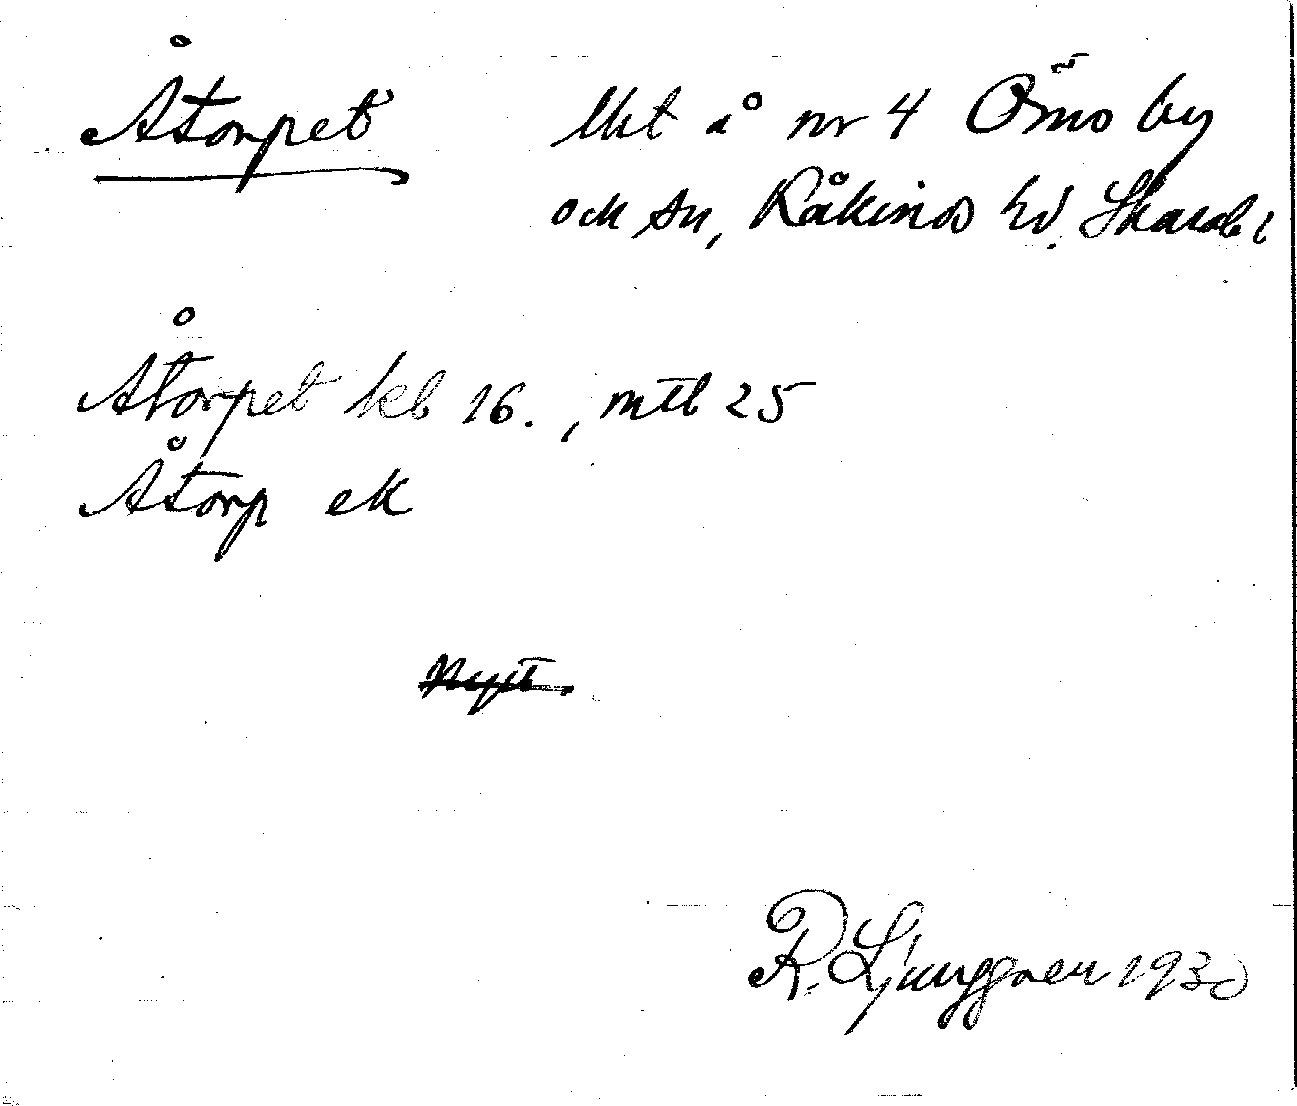 Åtorpet lht å nr 4 Öms by
och sn, Kåkinds hd. Skarab l
Åtorpet kb 16. , mtl 25
Åtorp ek
Nytt.
R. Ljunggren 1930